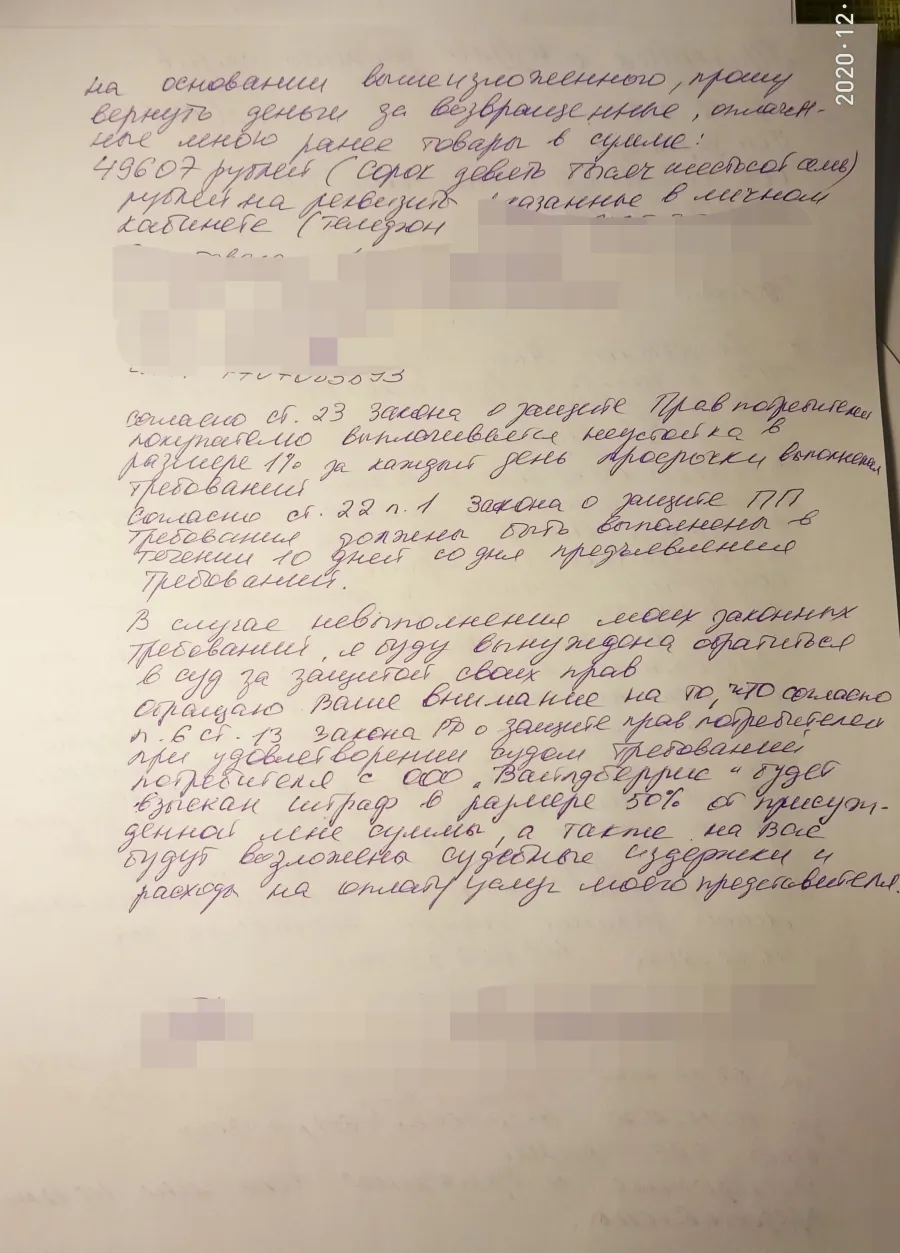 2020.12.
на основании вышеизложенного, прошу
вернуть деньги за возвращенные, оплачен-
ные мною ранее товары в сумме:
49607 рублей (Сорок девять тысяч шестьсот семь)
рублей на реквизиты указанные в личном
кабинете (телефон
согласно ст. 23 Закона о защите Прав потребителей
покупателю выплачивается неустойка в
размере 1% за каждый день просрочки выполнения
требований
согласно ст. 22 п.1 Закона о защите ПП
требования должны быть выполнены в
течении 10 дней со дня предъявления
требований.
В случае невыполнения моих законных
требований, я буду вынуждена обратиться
в суд за защитой своих прав
обращаю Ваше внимание на то, что согласно
п. 6 ст. 13 Закона РФ о защите прав потребителей
при удовлетворении судом требований
потребителя с ООО "Вайлдберрис" будет
взыскан штраф в размере 50% от присуж-
денной мне суммы, а также на Вас
будут возложены судебные издержки и
расходы на оплату услуг моего представителя.